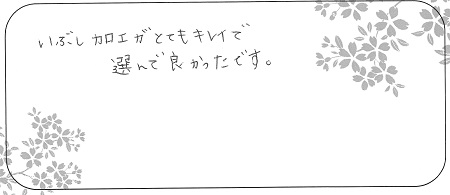 いぶし加工がとてもキレイで
選んで良かったです。